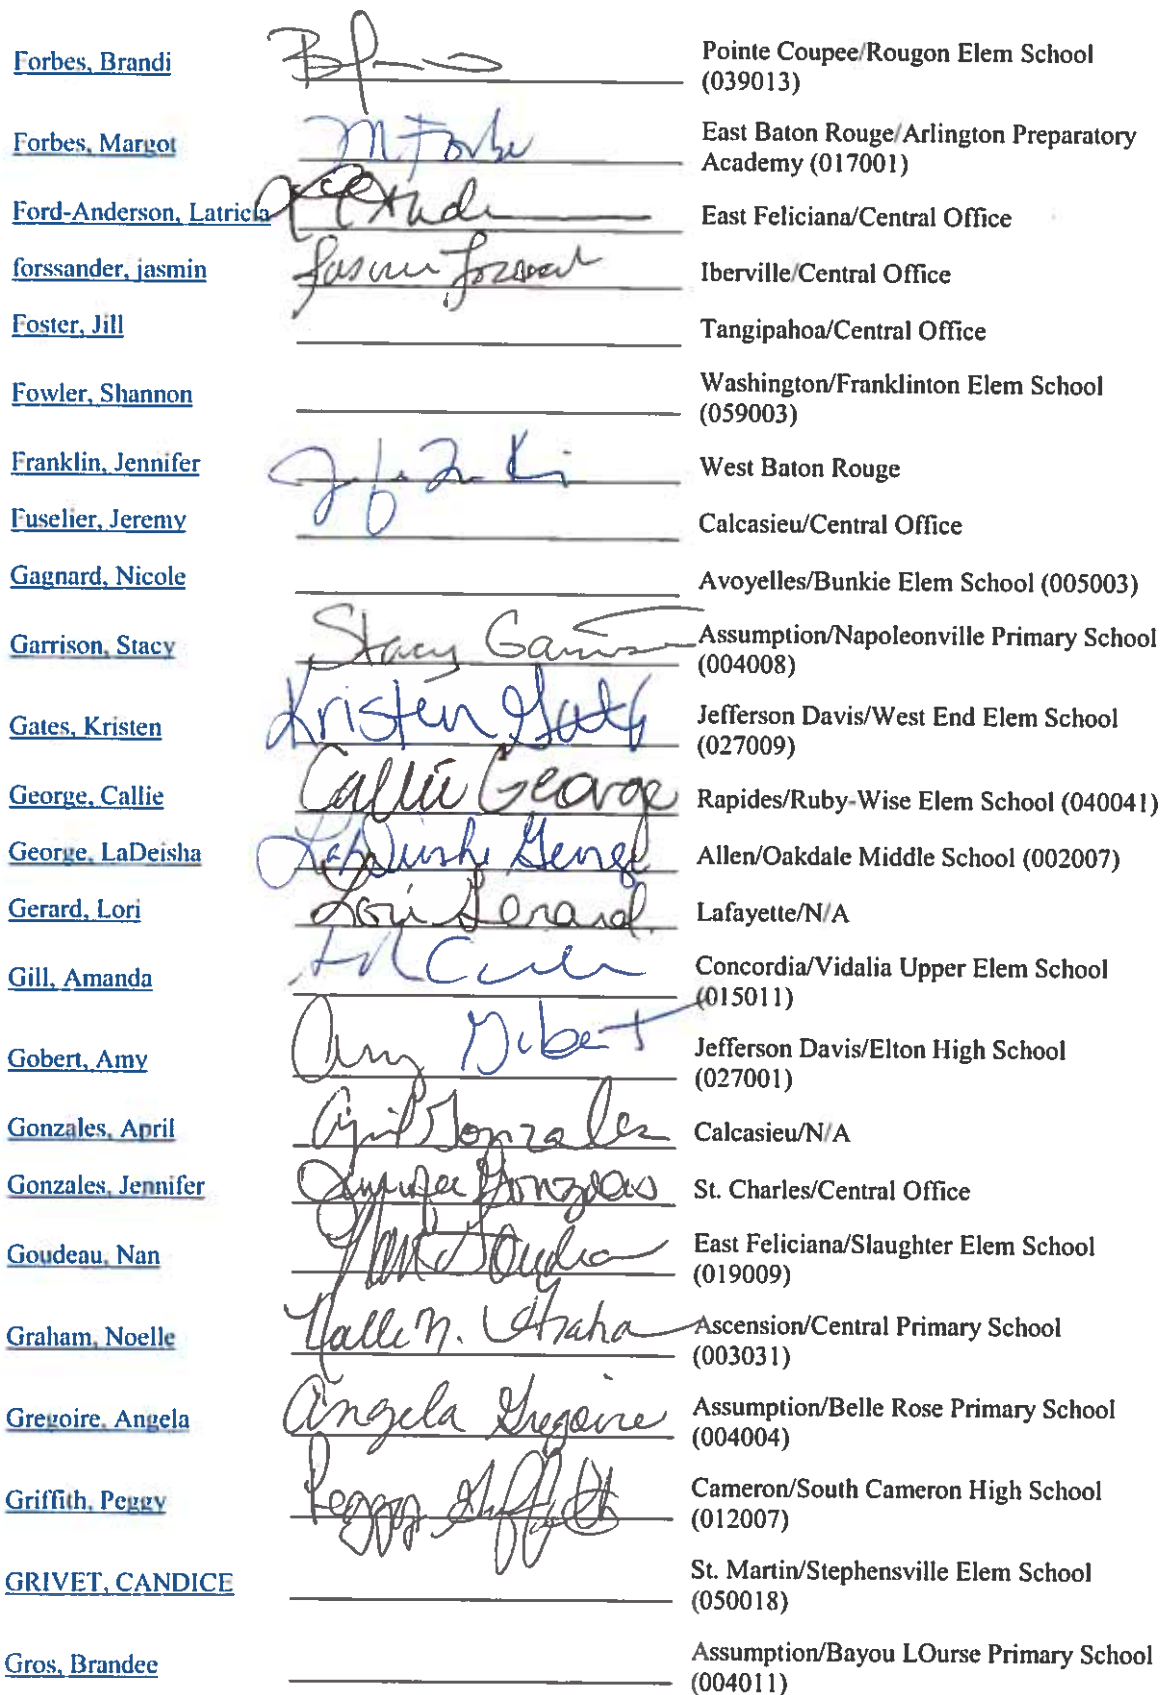 Forbes, Brandi Pointe Coupee/Rougon Elem School
(039013)
Forbes, Margot M Forbe East Baton Rouge/Arlington Preparatory
Academy (017001)
Ford-Anderson, Latricia East Feliciana/Central Office
forssander, jasmin Iberville/Central Office
Foster, Jill Tangipahoa/Central Office
Fowler, Shannon Washington/Franklinton Elem School
(059003)
Franklin, Jennifer West Baton Rouge
Fuselier, Jeremy Calcasieu/Central Office
Gagnard, Nicole Avoyelles/Bunkie Elem School (005003)
Garrison, Stacy Stacy Assumption/Napoleonville Primary School
(004008)
Gates, Kristen Kristen Gates Jefferson Davis/West End Elem School
(027009)
George, Callie Callie George Rapides/Ruby-Wise Elem School (040041)
George, LaDeisha Allen/Oakdale Middle School (002007)
Gerard, Lori Lori Gerard Lafayette/N/A
Gill, Amanda Concordia/Vidalia Upper Elem School
(015011)
Gobert, Amy Amy Jefferson Davis/Elton High School
(027001)
Gonzales, April April Gonzales Calcasieu/N/A
Gonzales, Jennifer Jennifer Gonzales St. Charles/Central Office
Goudeau, Nan Nan Goudeau East Feliciana/Slaughter Elem School
(019009)
Graham, Noelle Ascension/Central Primary School
(003031)
Gregoire, Angela Angela Gregoire Assumption/Belle Rose Primary School
(004004)
Griffith, Peggy Peggy Griffith Cameron/South Cameron High School
(012007)
GRIVET, CANDICE St. Martin/Stephensville Elem School
(050018)
Gros, Brandee Assumption/Bayou LOurse Primary School
(004011)